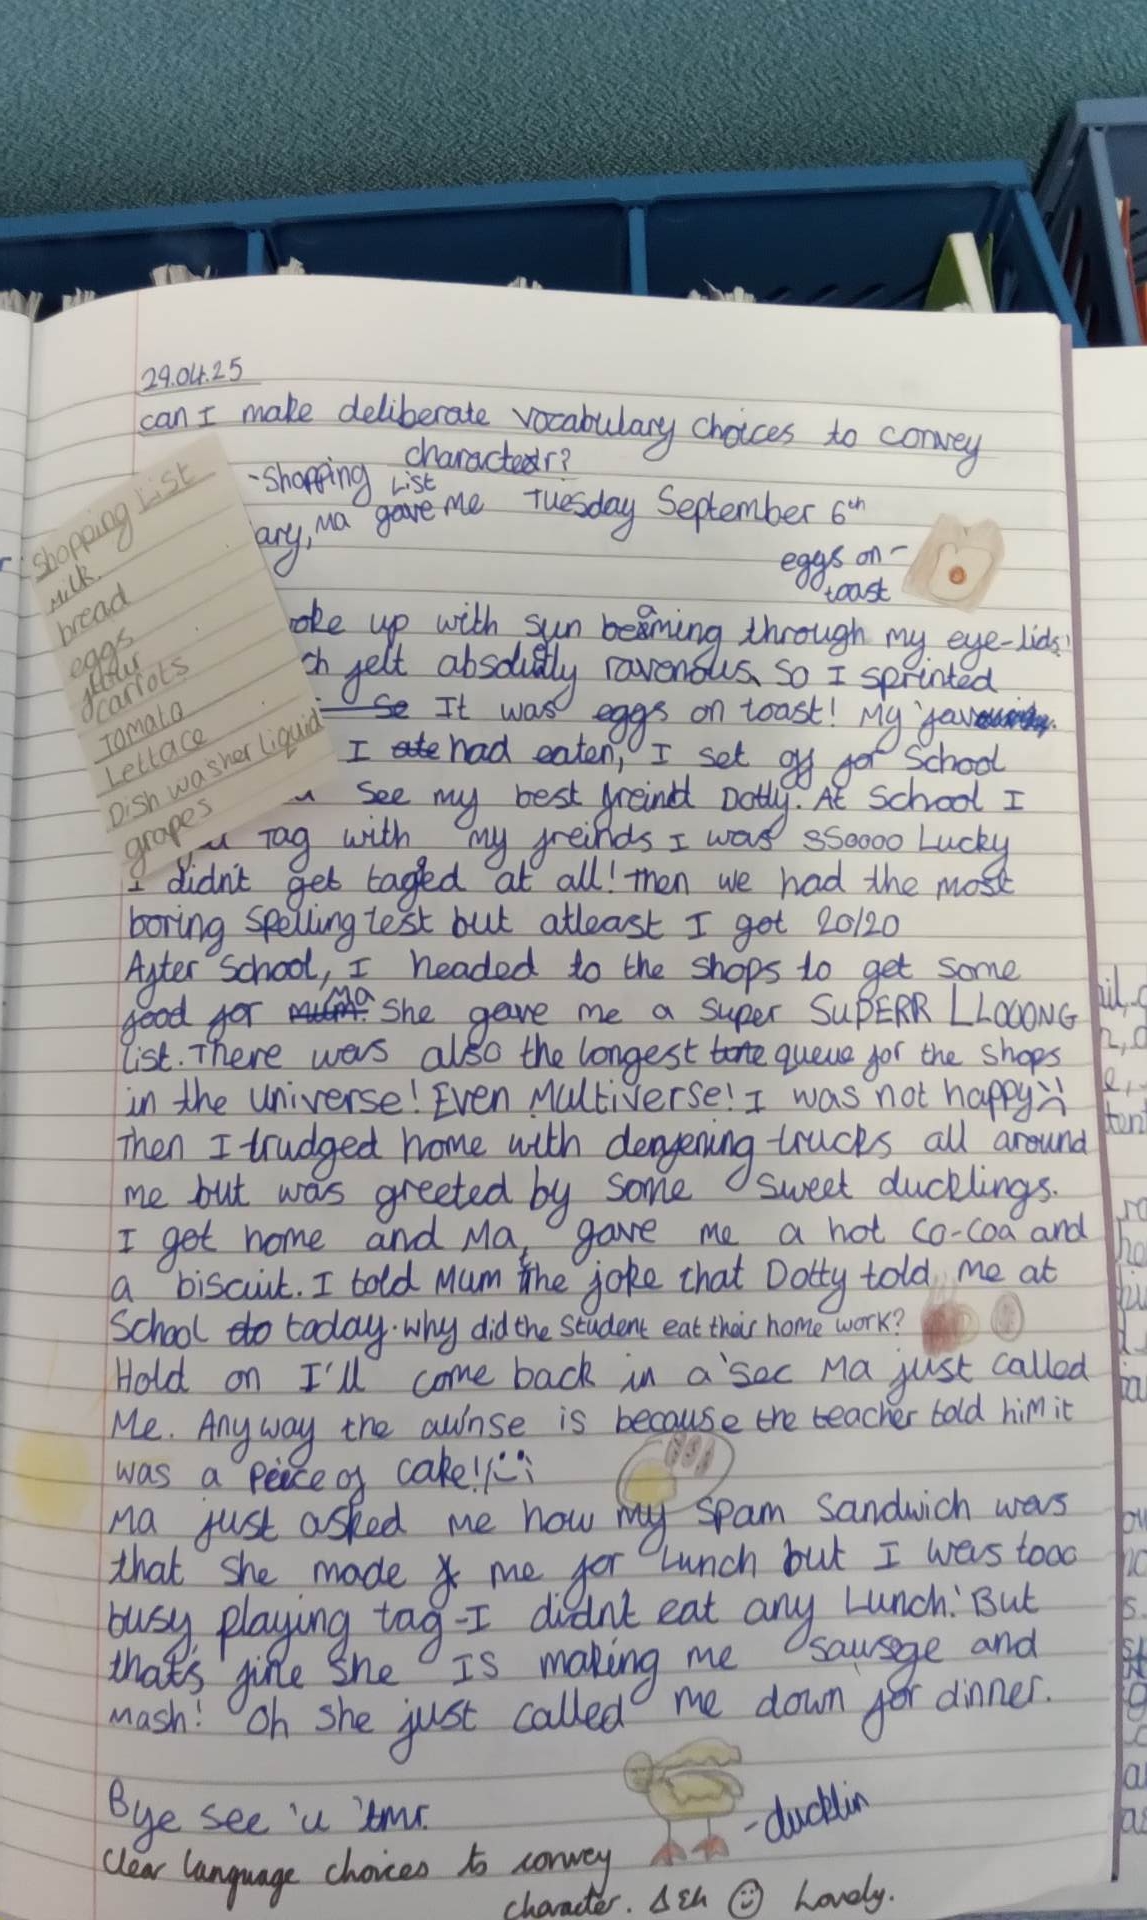 29.04.25
can I make deliberate vocabulary choices to convey
character?
-Shopping List
Ma gave me Tuesday September 6th
ary,
eggs on-
toast
Shopping List
Milk
bread
eggs
flour
carrots
Tomato
Lettace
Dish washer liquid
grapes
oke up with sun beaming through my eye-lids
ch felt absolutly ravenous, so I sprinted
So It was eggs on toast! My
I ate had eaten, I set off for School
See my best freind Dotty. At School I
Tag with my freinds I was SSoooo Lucky
I didn't get taged at all! Then we had the most
boring Spelling test but atleast I got 20/20
After School, I headed to the shops to get some
food for Mum. Ma She gave me a super SUPERR LLOOONG
list. There was also the longest queue for the shops
in the universe! Even Multiverse! I was not happy :(
Then I trudged home with defening trucks all around
me but was greeted by some sweet ducklings.
I got home and Ma, gave me a hot co-coa and
a biscuit. I told Mum the joke that Dotty told me at
School do today. why did the student eat their home work?
Hold on I'll come back in a 'sec Ma just called
Me. Anyway the awnse is because the teacher told him it
was a peice of cake!
Ma just asked me how my spam sandwich was
that she made me for Lunch but I was tooo
busy playing tag-I didn't eat any Lunch! But
that's fine she Is making me sausge and
mash! Oh she just called me down for dinner.
Bye see 'u 'tmr.
-ducklin
Clear language choices to convey
character. Lovely.